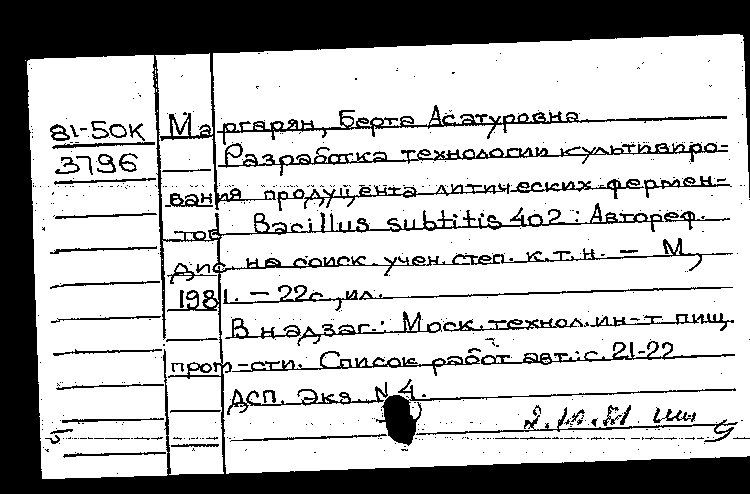 81-50К Маргарян, Берта Асатуровна
3796 Разработка технологии культивиро-
вания продуцента литических фермен-
тов Bacillus subtitis 402 : Автореф.
дис. на соиск. учен. степ. к.т.н. – М,
1981. – 22с., ил.
В надзаг.: Моск. технол. ин-т пищ.
пром-сти. Список работ авт.: с. 21-22
ДСП. Экз. N 4.